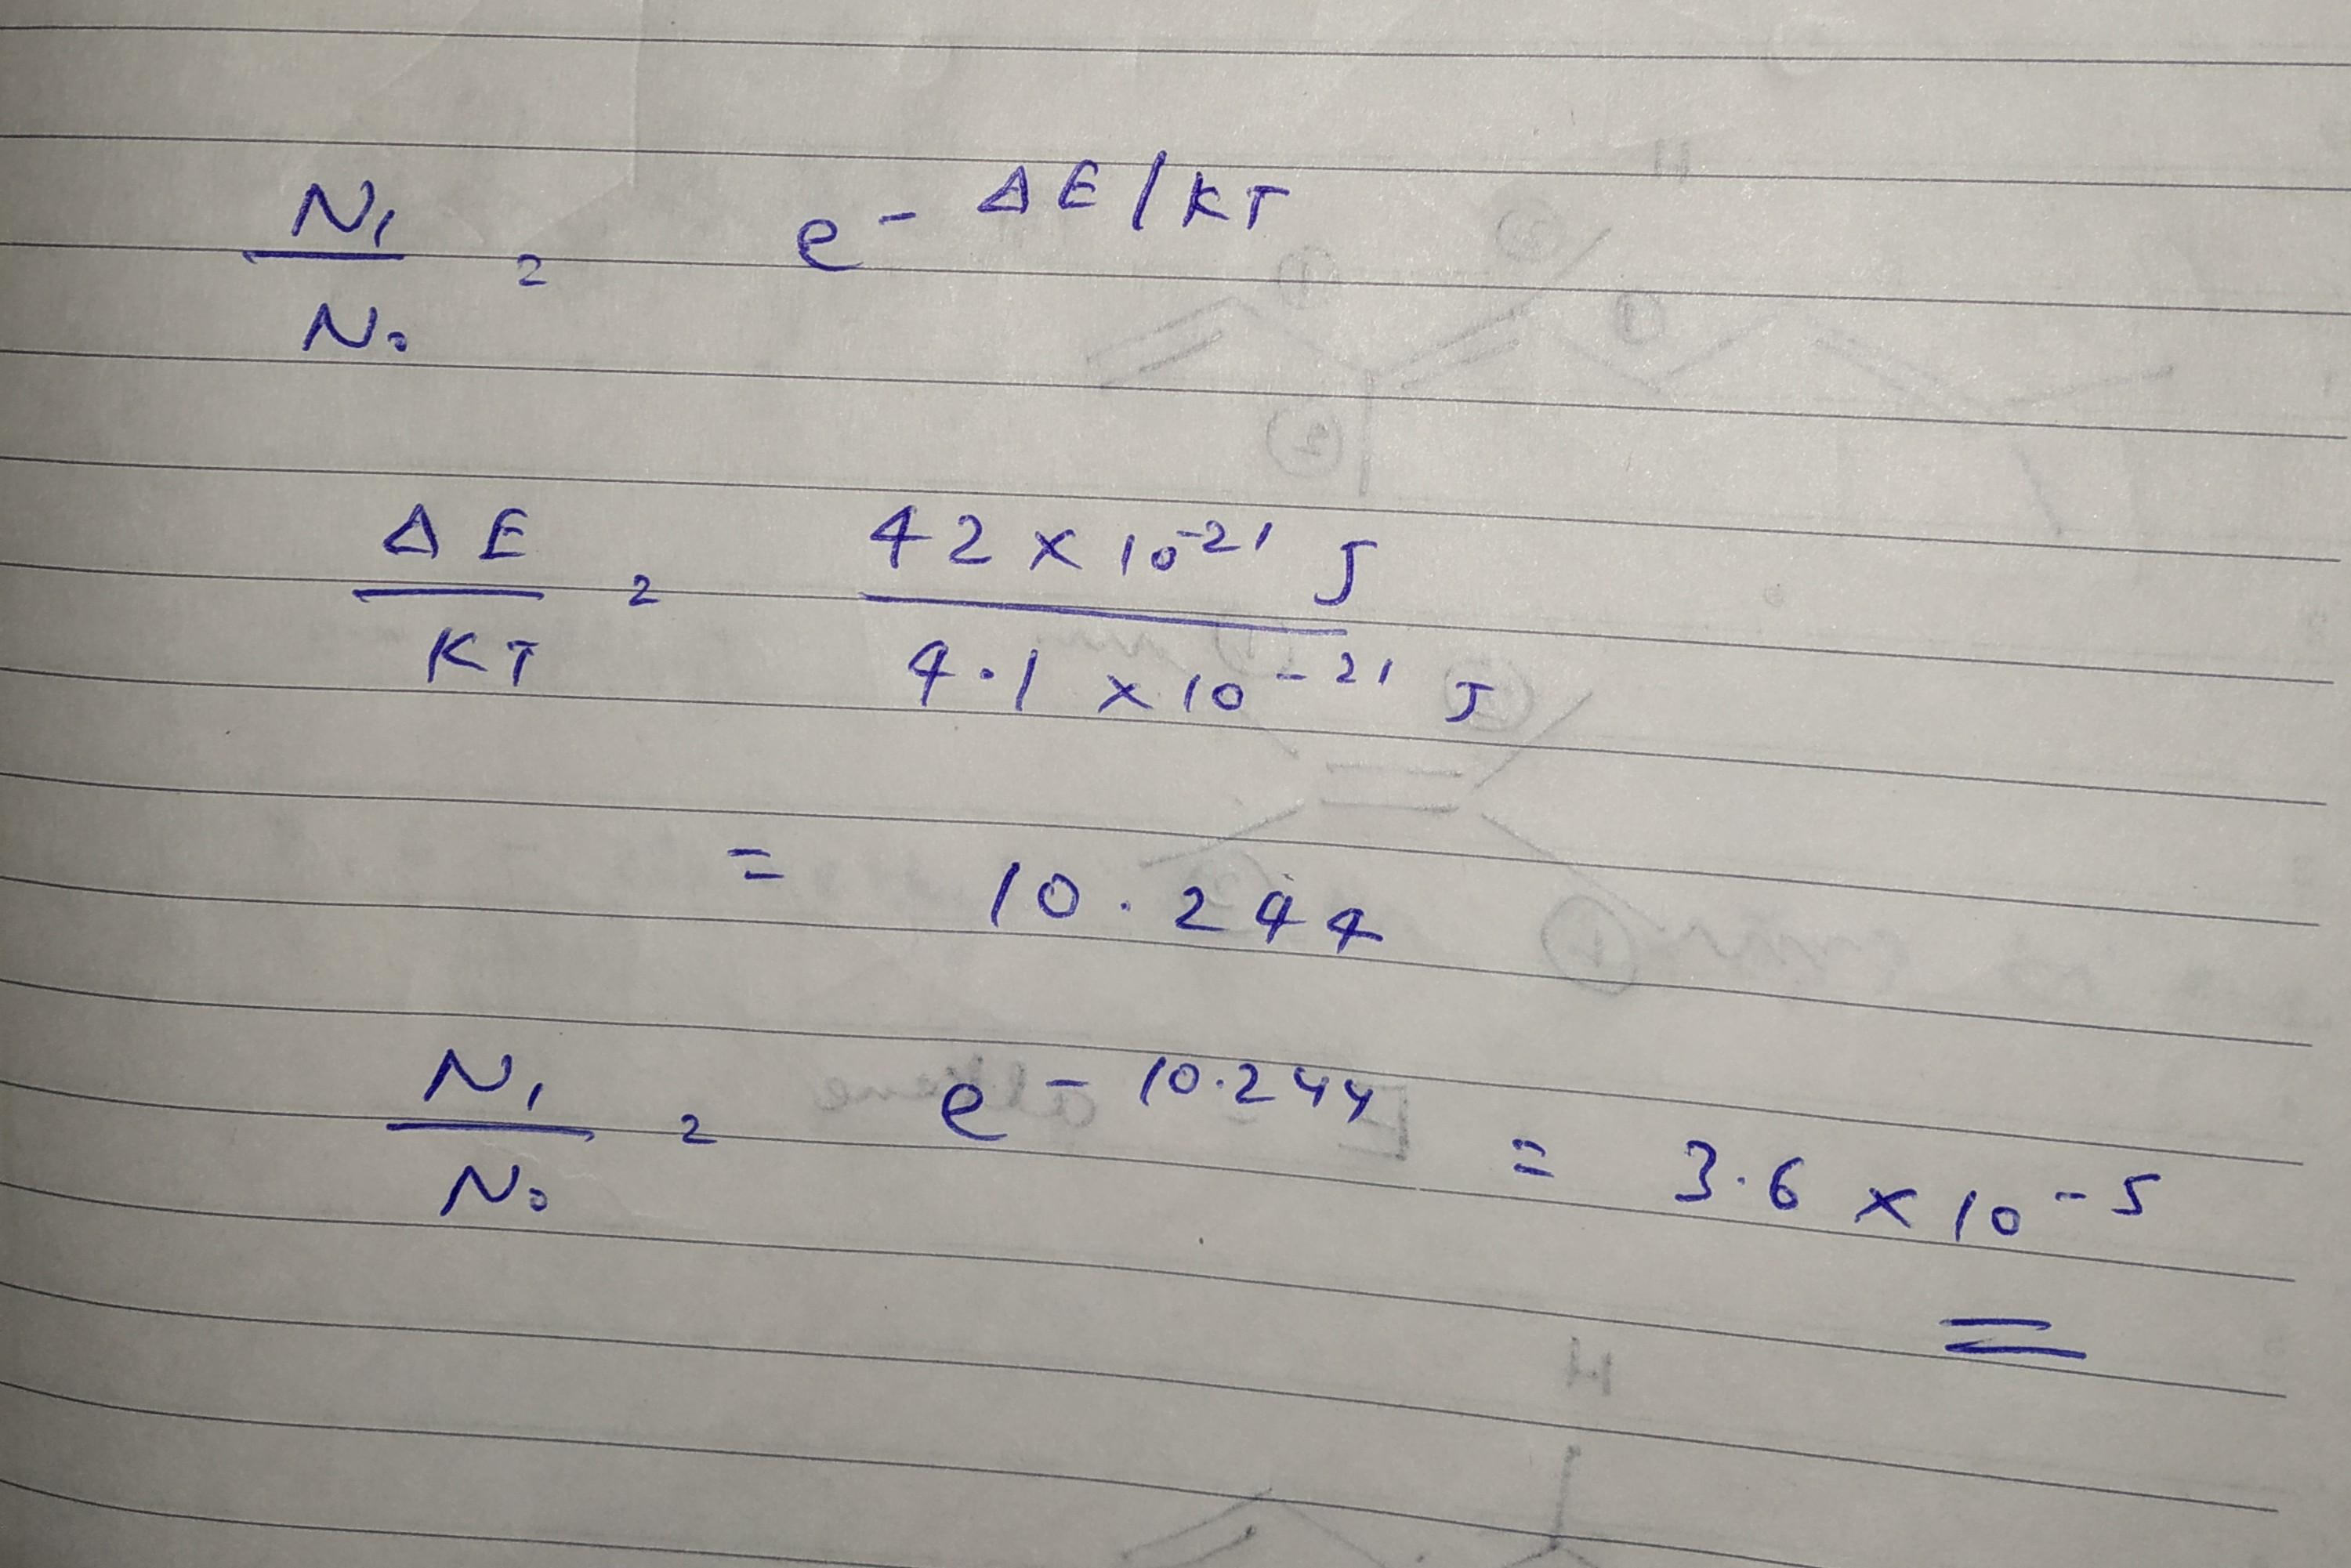 N₁/N₀ = e^(-ΔE/KT)
ΔE/KT = 42 × 10⁻²¹ J / 4.1 × 10⁻²¹ J
= 10.244
N₁/N₀ = e^(-10.244) = 3.6 × 10⁻⁵